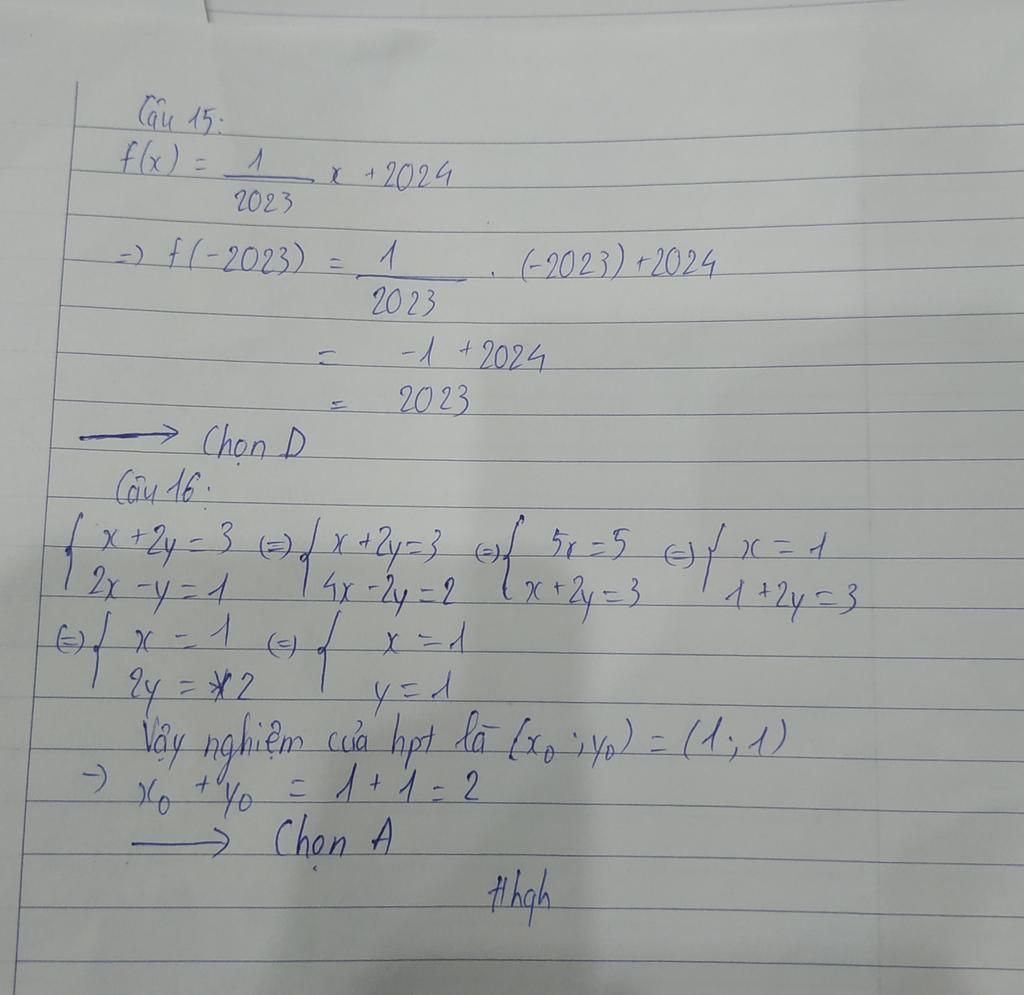 Câu 15:
f(x) = 1/2023 x + 2024
=> f(-2023) = 1/2023 . (-2023) + 2024
= -1 + 2024
= 2023
→ Chọn D
Câu 16:
{ x + 2y = 3 (=) { x + 2y = 3 (=) { 5x = 5 (=) { x = 1
2x - y = 1 4x - 2y = 2 x + 2y = 3 1 + 2y = 3
(=) { x = 1 (=) { x = 1
2y = 2 y = 1
Vậy nghiệm của hpt là (x₀ ; y₀) = (1 ; 1)
-> x₀ + y₀ = 1 + 1 = 2
→ Chọn A
#hgh